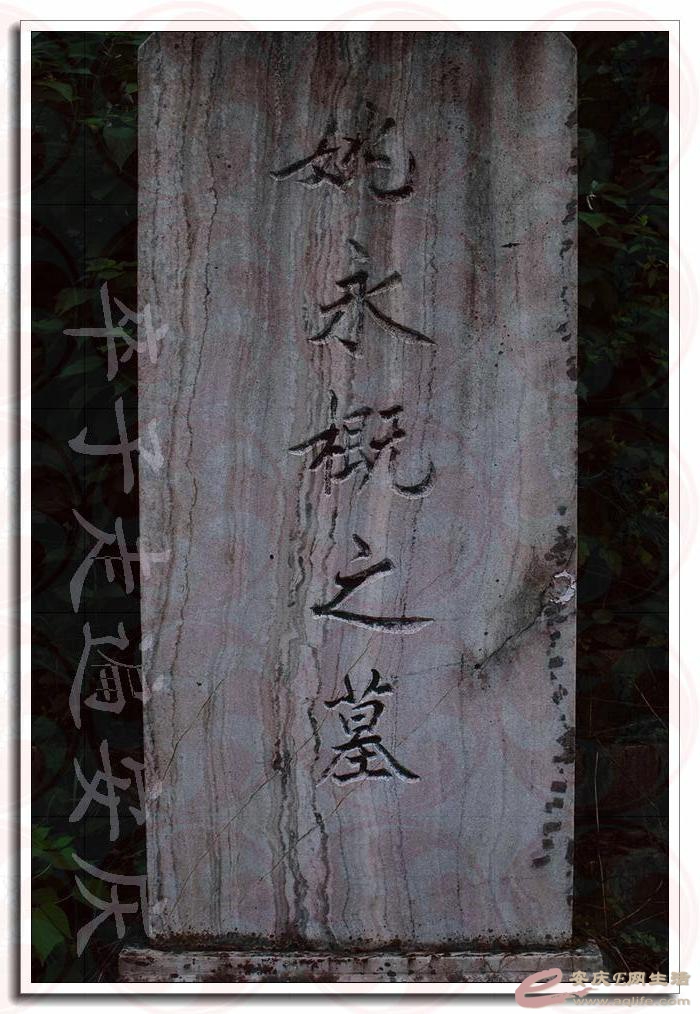 姚永概之墓
苹子走遍安庆
安庆E网生活
www.aqlife.com